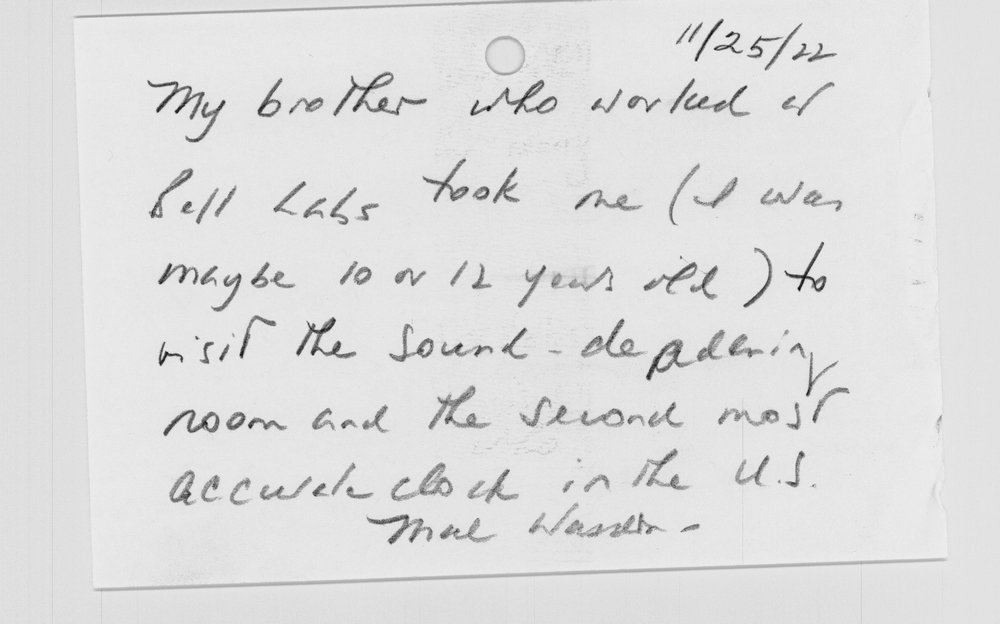 11/25/22
My brother who worked at
Bell Labs took me (I was
maybe 10 or 12 years old) to
visit the sound-deadening
room and the second most
accurate clock in the U.S.